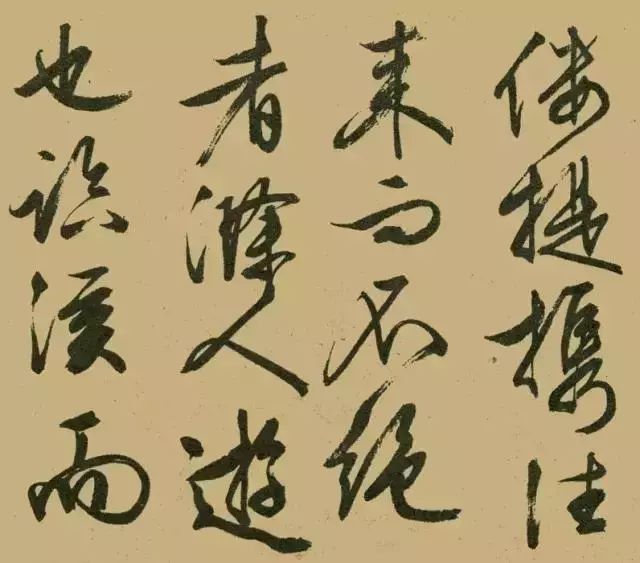 僂提攜往
來而不絕
者滁人遊
也臨溪而